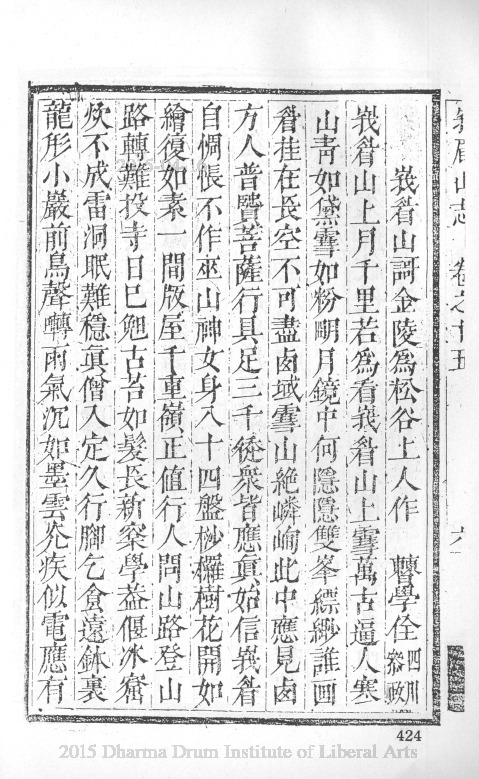 峩眉山志 卷之十五 六
峩眉山謌金陵爲松谷上人作 曹學佺 四川叅政
峩眉山上月千里若爲看峩眉山上雪萬古逼人寒
山靑如黛雪如粉明月鏡中何隱隱雙峯縹緲誰画
眉挂在長空不可盡西域雪山絶嶙峋此中應見西
方人普賢菩薩行具足三千徒衆皆應眞始信峩眉
自惆悵不作巫山神女身入十四盤桫欏樹花開如
繪復如素一間版屋千重嶺正値行人問山路登山
路轉難投寺日已
古苔如髮長新
學葢偃氷窩
炊不成雷洞眠難穩眞僧入定久行腳乞食遠鉢裏
龍形小巖前鳥聲囀雨氣沉如墨雲
疾似電應有
424
2015 Dharma Drum Institute of Liberal Arts